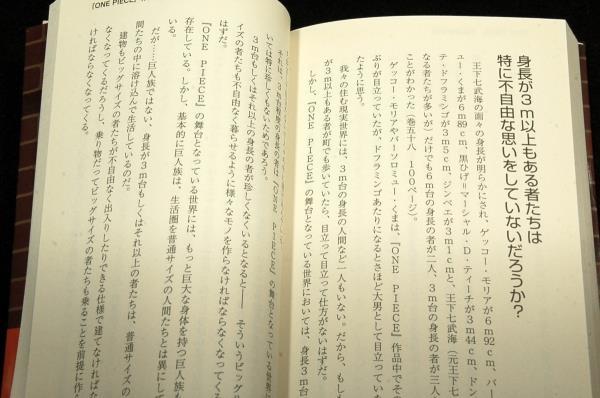 身長が3m以上もある者たちは
特に不自由な思いをしていないだろうか?
王下七武海の面々の身長が明らかにされ、ゲッコー・モリアが6m92cm、バー
ュー・くまが6m89cm、黒ひげ=マーシャル・D・ティーチが3m44cm、ドン
テ・ドフラミンゴが3m5cm、ジンベエが3m1cmと、王下七武海(元王下七
なる者たちが多いが)だけでも6m台の身長の者が二人、3m台の身長の者が三人
ことがわかった(巻五十八 100ページ)。
ゲッコー・モリアやバーソロミュー・くまは、『ONE PIECE』作品中でその
ぶりが目立っていたが、ドフラミンゴあたりになるとさほど大男として目立っていな
たように思う。
我々の住む現実世界には、3m台の身長の人間など一人もいない。だから、もし
が3m以上もある者が町でも歩いていたら、目立って目立って仕方がないはずだ。
しかし、『ONE PIECE』の舞台となっている世界においては、身長が3m
『ONE PIECE』
それは、3m台程度の身長の者は、『ONE PIECE』の舞台となっている世界に
いては特に珍しくもないためであろう。
3m台もしくはそれ以上の身長の者が珍しくなくいるとなると── そういうビッグサ
イズの者たちも不自由なく暮らせるように様々なモノを作らなければならなくなってくる
はずだ。
『ONE PIECE』の舞台となっている世界には、もっと巨大な身体を持つ巨人族も
存在している。しかし、基本的に巨人族は、生活圏を普通サイズの人間たちとは異にして
いる。
だが……巨人族ではない、身長が3m台もしくはそれ以上の者たちは、普通サイズの
間たちの中に溶け込んで生活しているのだ。
建物もビッグサイズの者たちが不自由なく出入りしたりできる仕様で建てなければな
なくなってくるだろうし、乗り物だってビッグサイズの者たちも乗ることを前提に作
ければならなくなってくる。